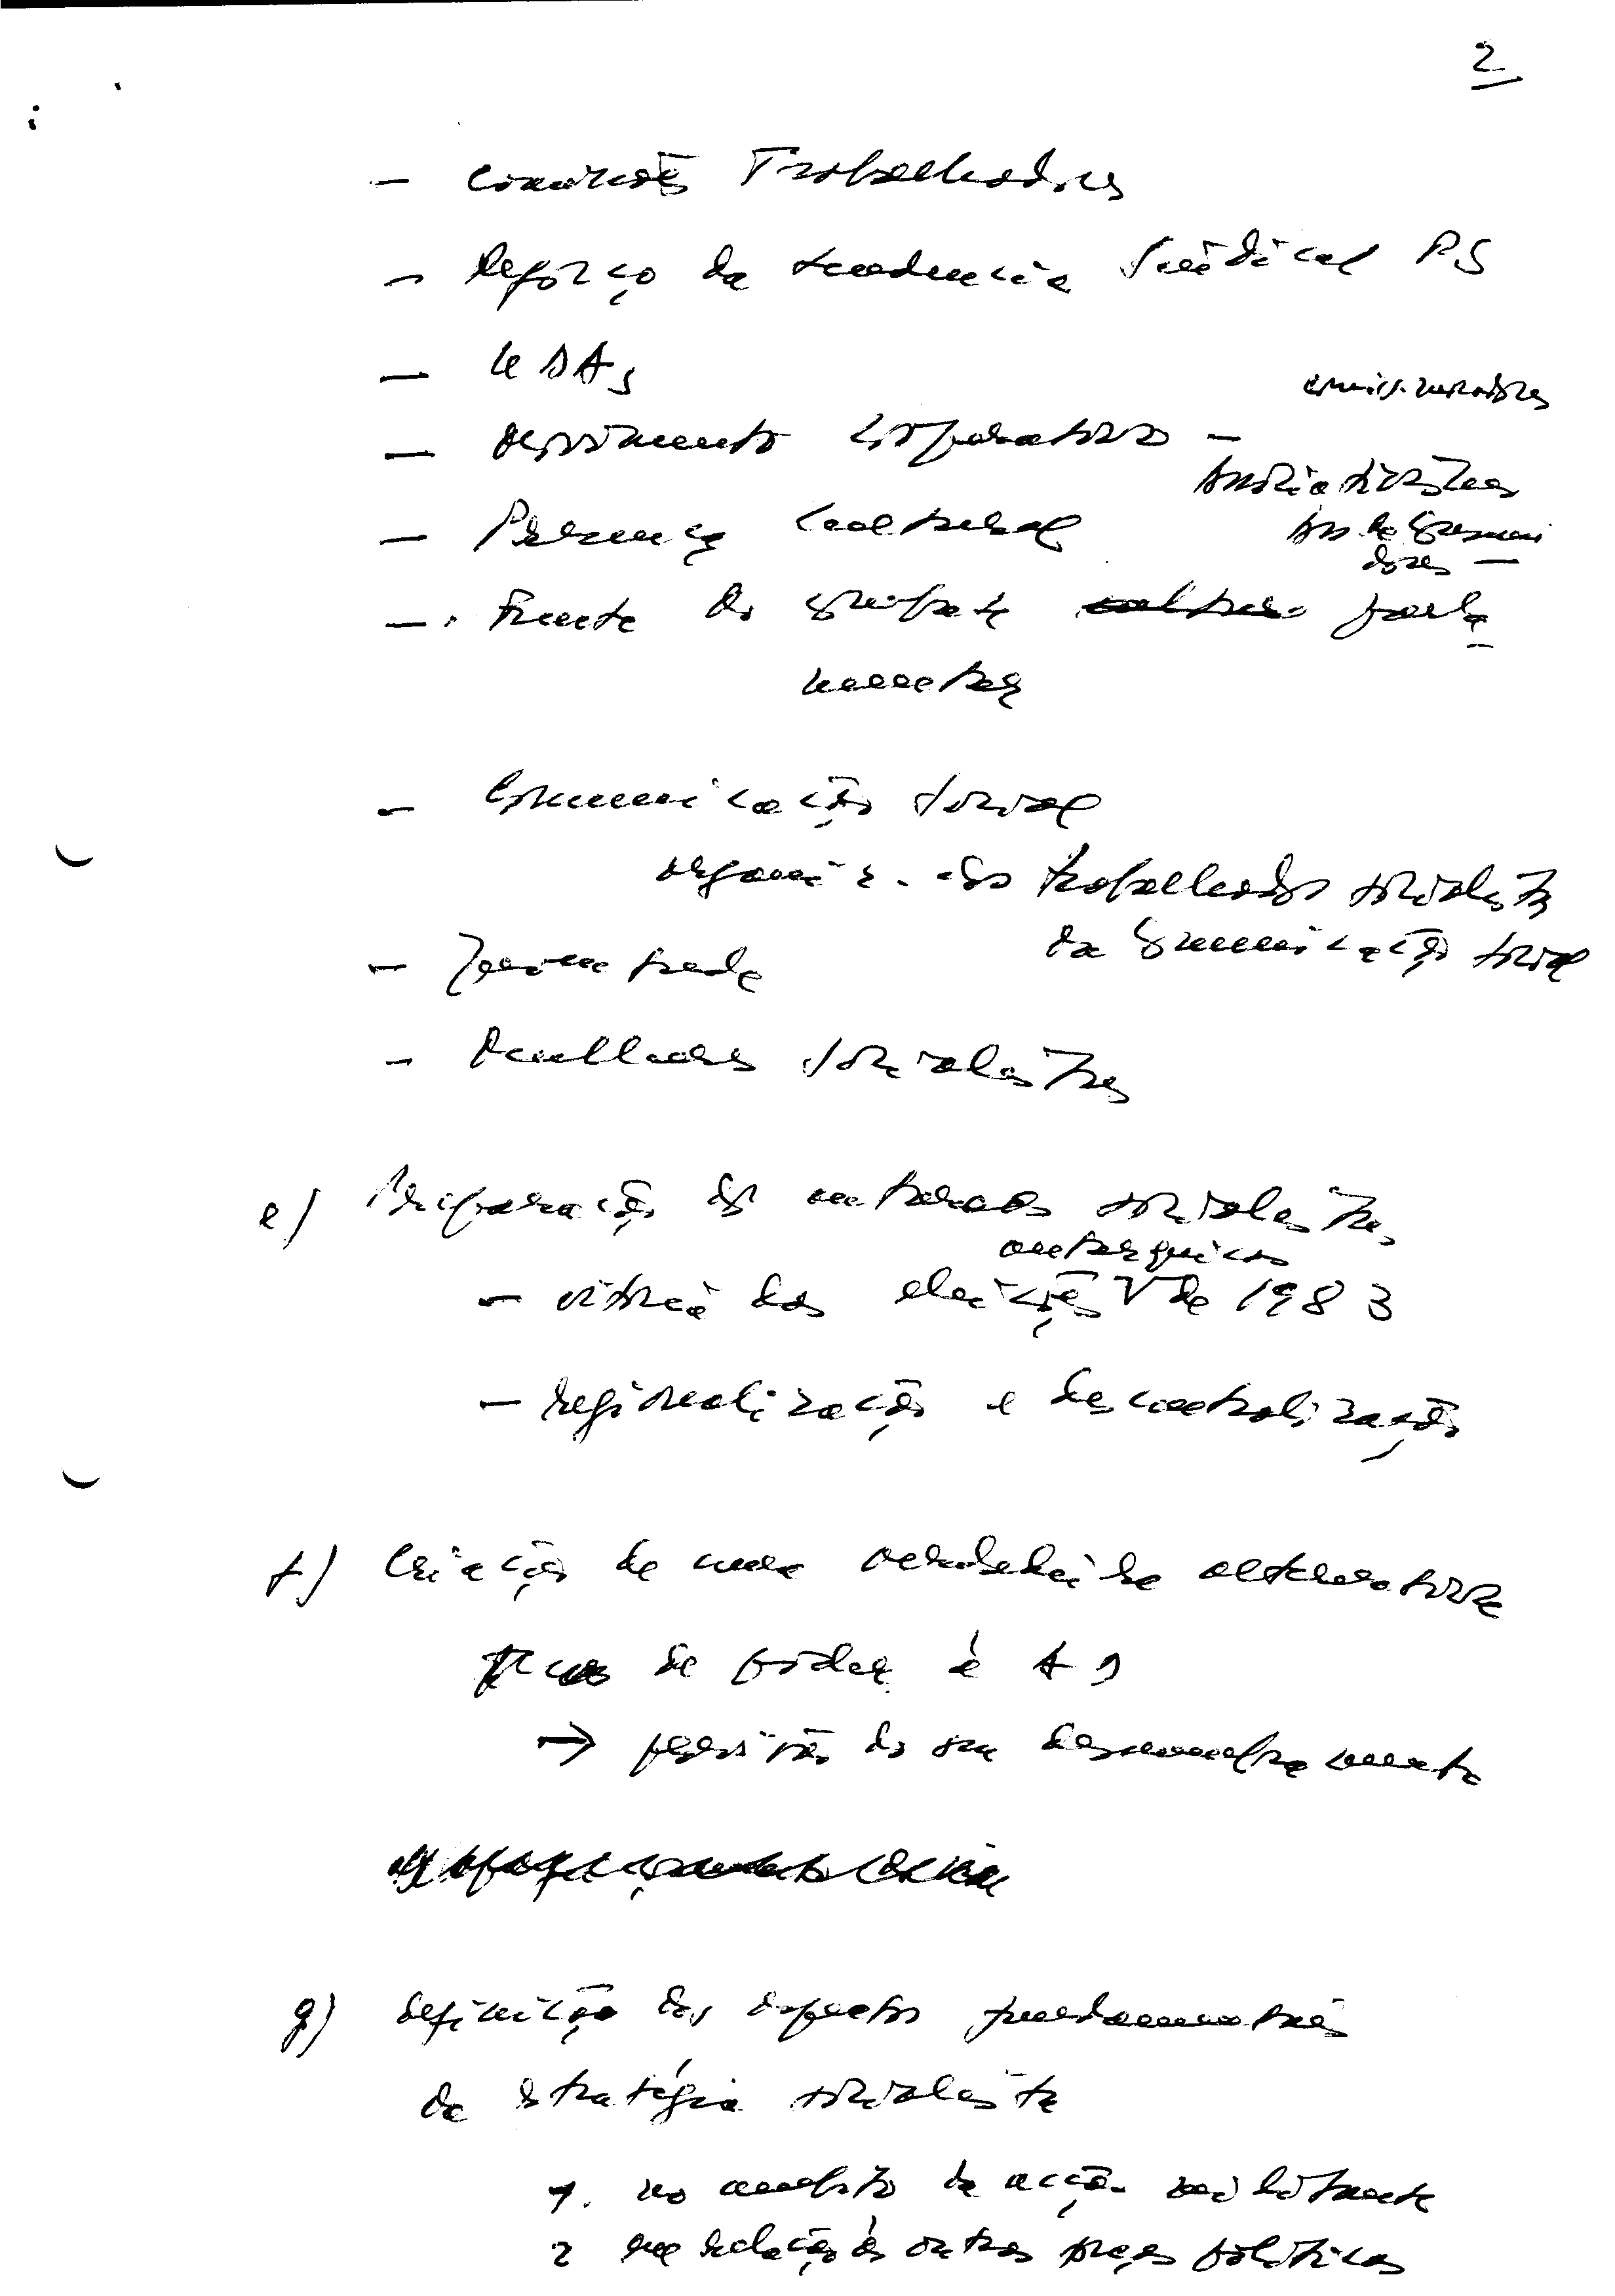 2
- Comissões Trabalhadores
- Reforço da tendência Sindical PS
- UDAs
- Movimento Cooperativo -
Ass. de Consumi
dores -
- Presença Cultural
- Frente do combate parla
mentar
- Comunicação social
organiz. dos trabalhadores socialistas
da Comunicação social
- Juventude
- Mulheres socialistas
e) Preparação dos autarcas socialistas
autárquicas
- vitória das eleições V de 1983
- regionalização e descentralização
f) Criação de uma verdadeira alternativa
de poder à AD
→ posição do seu desmembramento
g) definição dos aspectos fundamentais
da estratégia socialista
1. no âmbito da acção militante
2 na relação às outras forças políticas